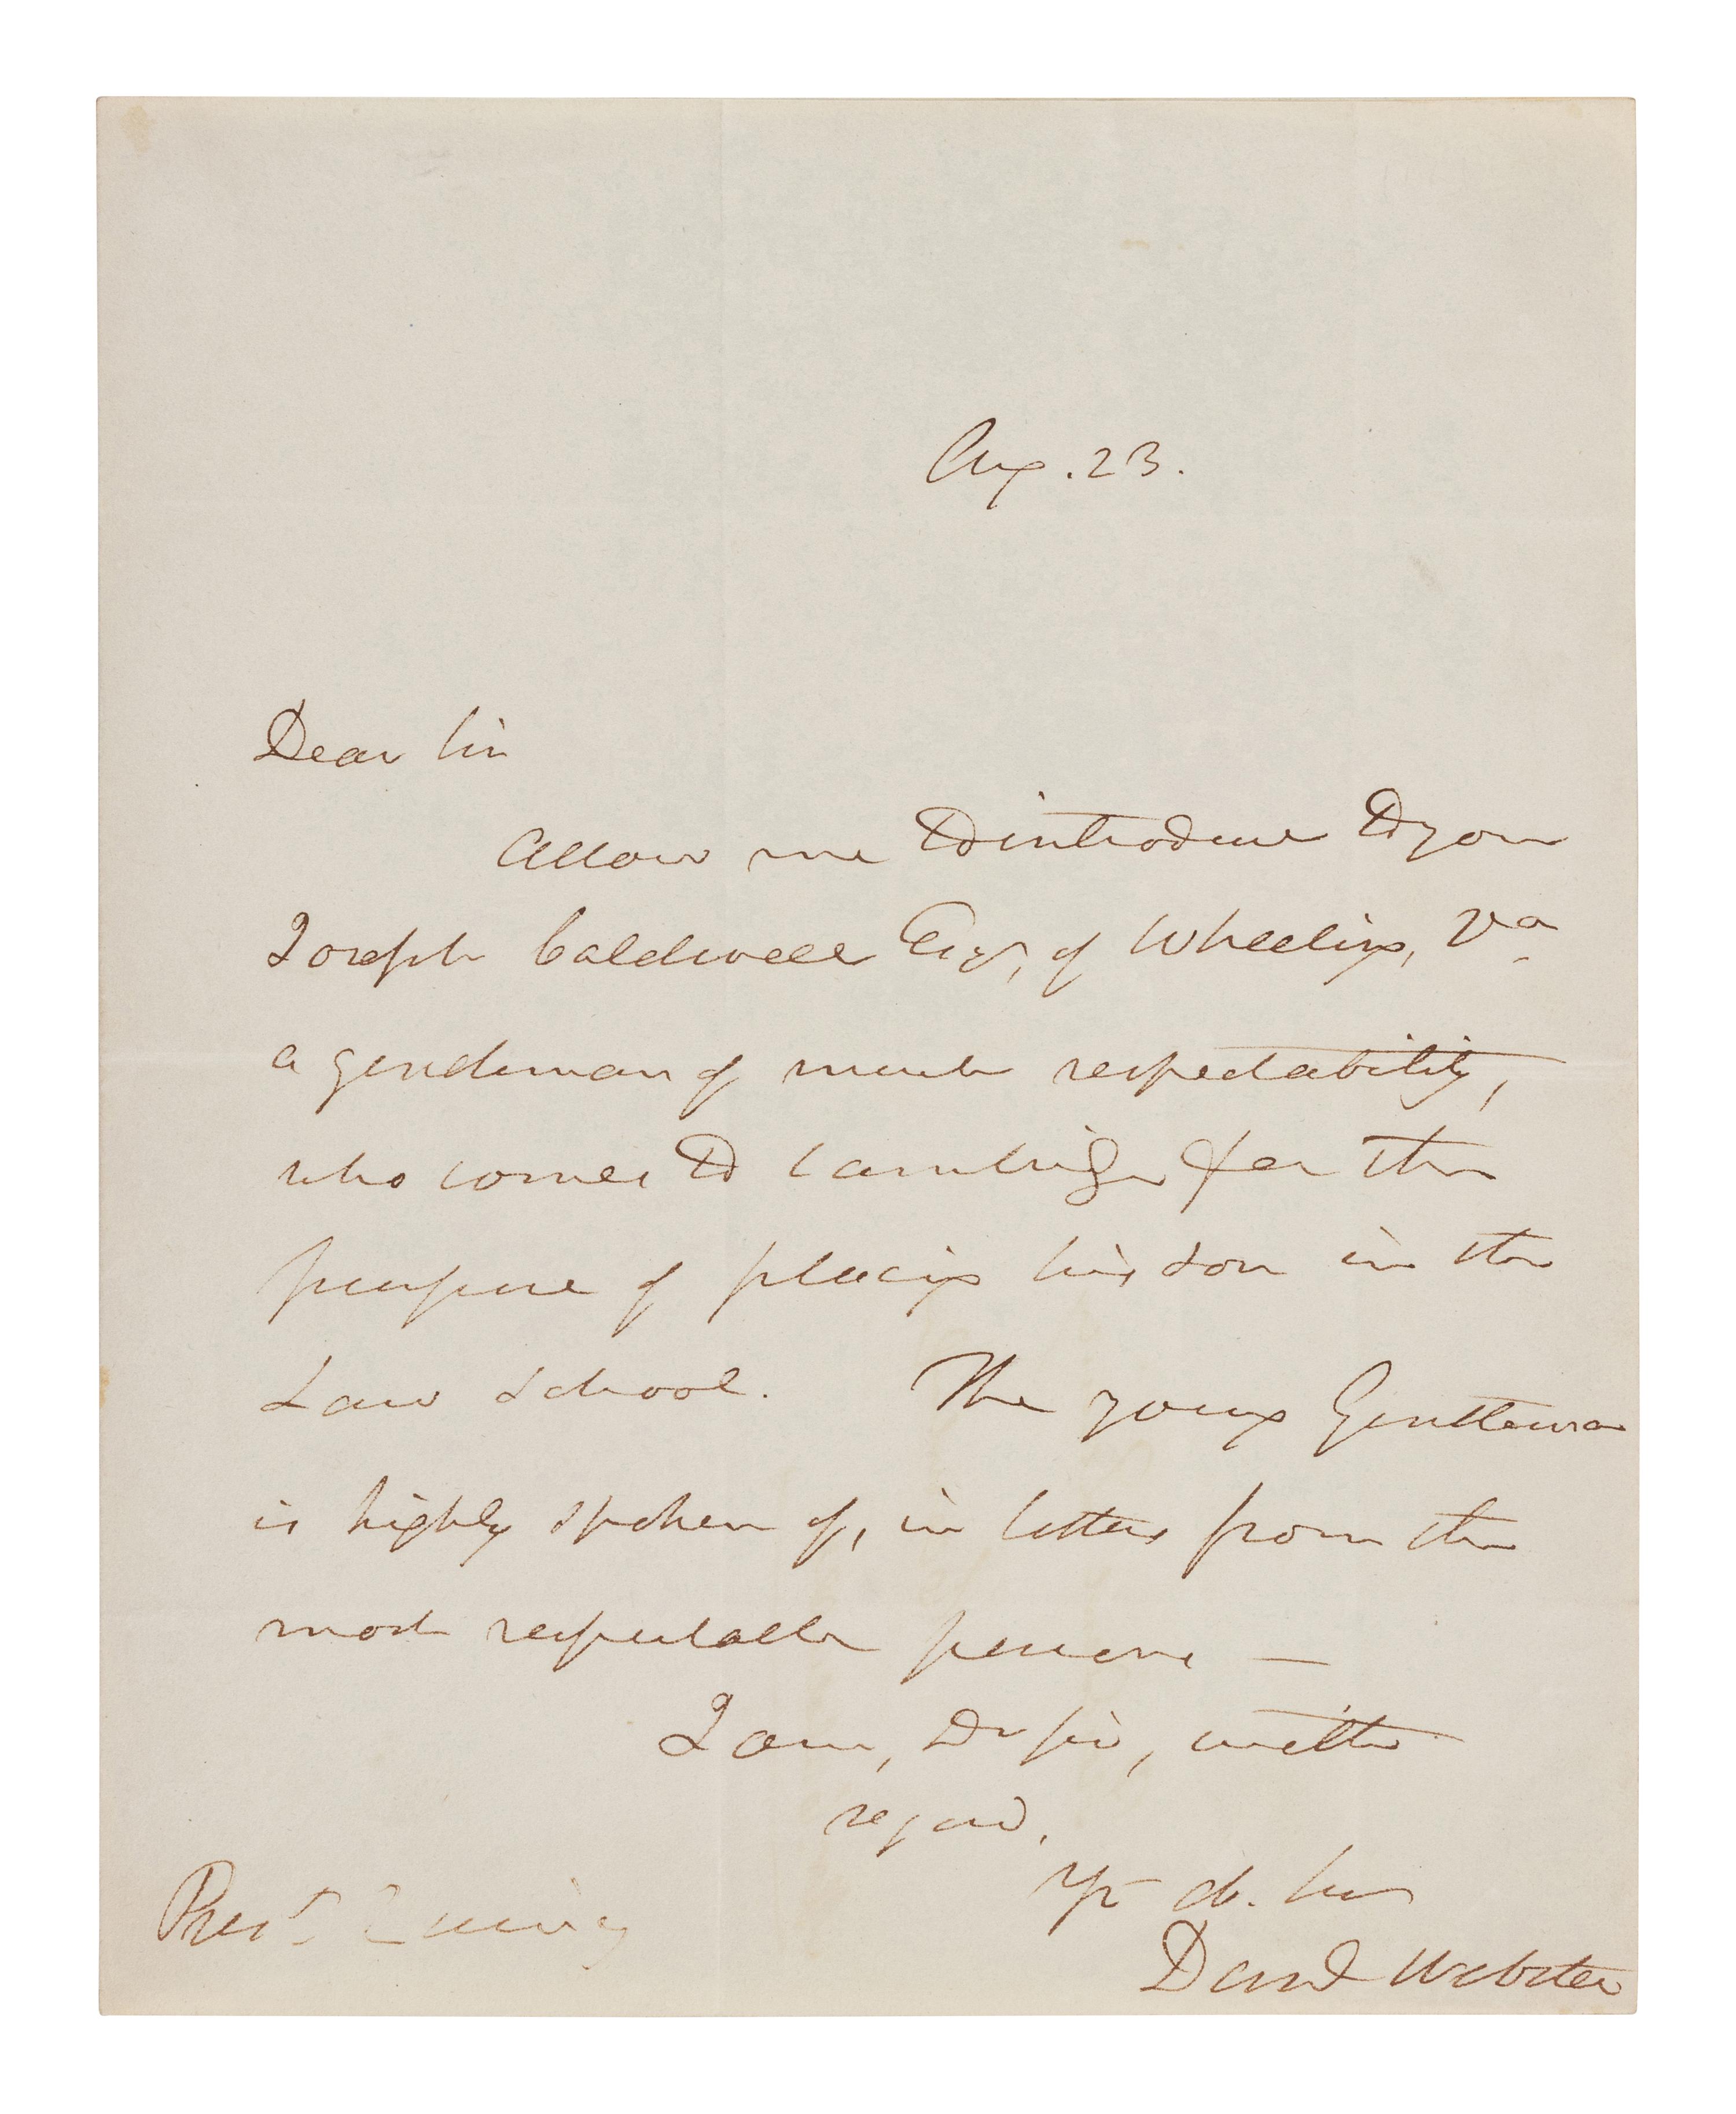 Aug. 23.
Dear Sir
Allow me to introduce to you
Joseph Caldwell Esq, of Wheeling, Va.
a gentleman of much respectability,
who comes to Cambridge for the
purpose of placing his son in the
Law School. The young Gentleman
is highly spoken of, in letters from the
most respectable persons —
I am, Dr Sir, with
regard,
Yr ob. Ser
Danl Webster
Prest Quincy